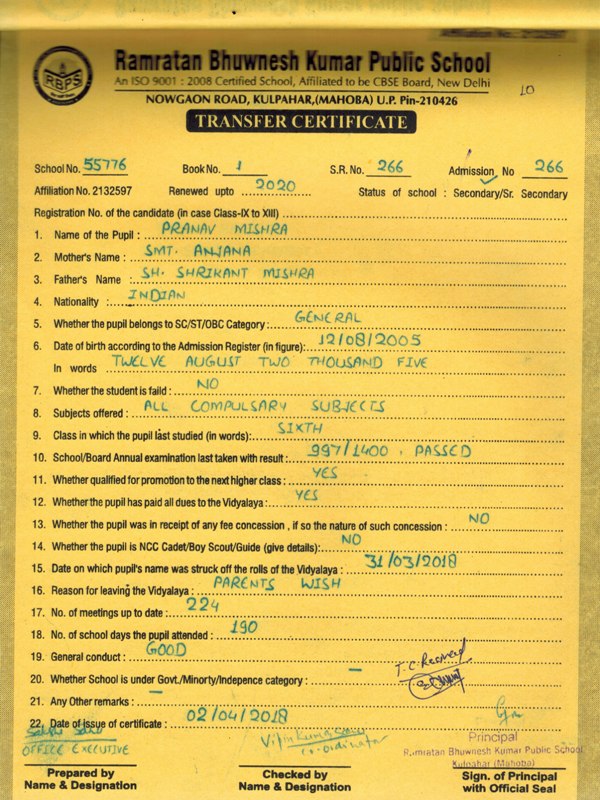 Affiliation No. 2132597
RBPS
Ramratan Bhuwnesh Kumar Public School
An ISO 9001 : 2008 Certified School, Affiliated to be CBSE Board, New Delhi
NOWGAON ROAD, KULPAHAR,(MAHOBA) U.P. Pin-210426
10
TRANSFER CERTIFICATE
School No. 55776 Book No. 1 S.R. No. 266 Admission No 266
Affiliation No. 2132597 Renewed upto 2020 Status of school : Secondary/Sr. Secondary
Registration No. of the candidate (in case Class-IX to XIII)
1. Name of the Pupil : PRANAV MISHRA
2. Mother's Name : SMT. ANJANA
3. Father's Name : SH. SHRIKANT MISHRA
4. Nationality : INDIAN
5. Whether the pupil belongs to SC/ST/OBC Category : GENERAL
6. Date of birth according to the Admission Register (in figure): 12/08/2005
In words TWELVE AUGUST TWO THOUSAND FIVE
7. Whether the student is faild : NO
8. Subjects offered : ALL COMPULSARY SUBJECTS
9. Class in which the pupil last studied (in words): SIXTH
10. School/Board Annual examination last taken with result : 997/1400 . PASSED
11. Whether qualified for promotion to the next higher class : YES
12. Whether the pupil has paid all dues to the Vidyalaya : YES
13. Whether the pupil was in receipt of any fee concession , if so the nature of such concession : NO
14. Whether the pupil is NCC Cadet/Boy Scout/Guide (give details): NO
15. Date on which pupil's name was struck off the rolls of the Vidyalaya : 31/03/2018
16. Reason for leaving the Vidyalaya : PARENTS WISH
17. No. of meetings up to date : 224
18. No. of school days the pupil attended : 190
19. General conduct : GOOD
T.C. Received
20. Whether School is under Govt./Minorty/Indepence category : —
21. Any Other remarks : —
22. Date of issue of certificate : 02/04/2018
OFFICE EXECUTIVE
Co-ordinator
Principal
Ramratan Bhuwnesh Kumar Public School
Kulpahar (Mahoba)
Prepared by Checked by Sign. of Principal
Name & Designation Name & Designation with Official Seal